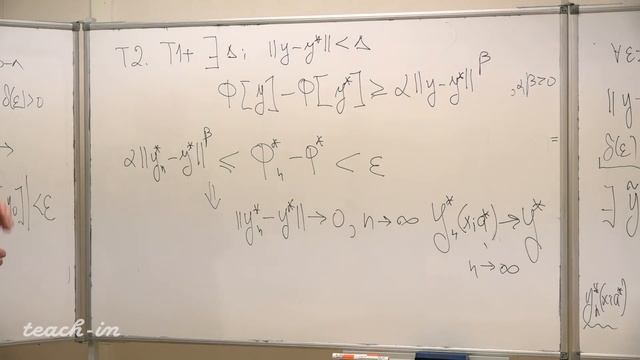 δ(ε)>0
]|<ε
T2. T1+ ∃ Δ; ||y-y*||<Δ
Φ[y]-Φ[y*]≥α||y-y*||^β, α,β>0
α||yₙ*-y*||^β ≤ Φₙ*-Φ* < ε
⇓
||yₙ*-y*||→0, n→∞ yₙ*(x,a*)→y*
n→∞
||y-
δ(ε)
yₙ*(x,a*)
teach-in